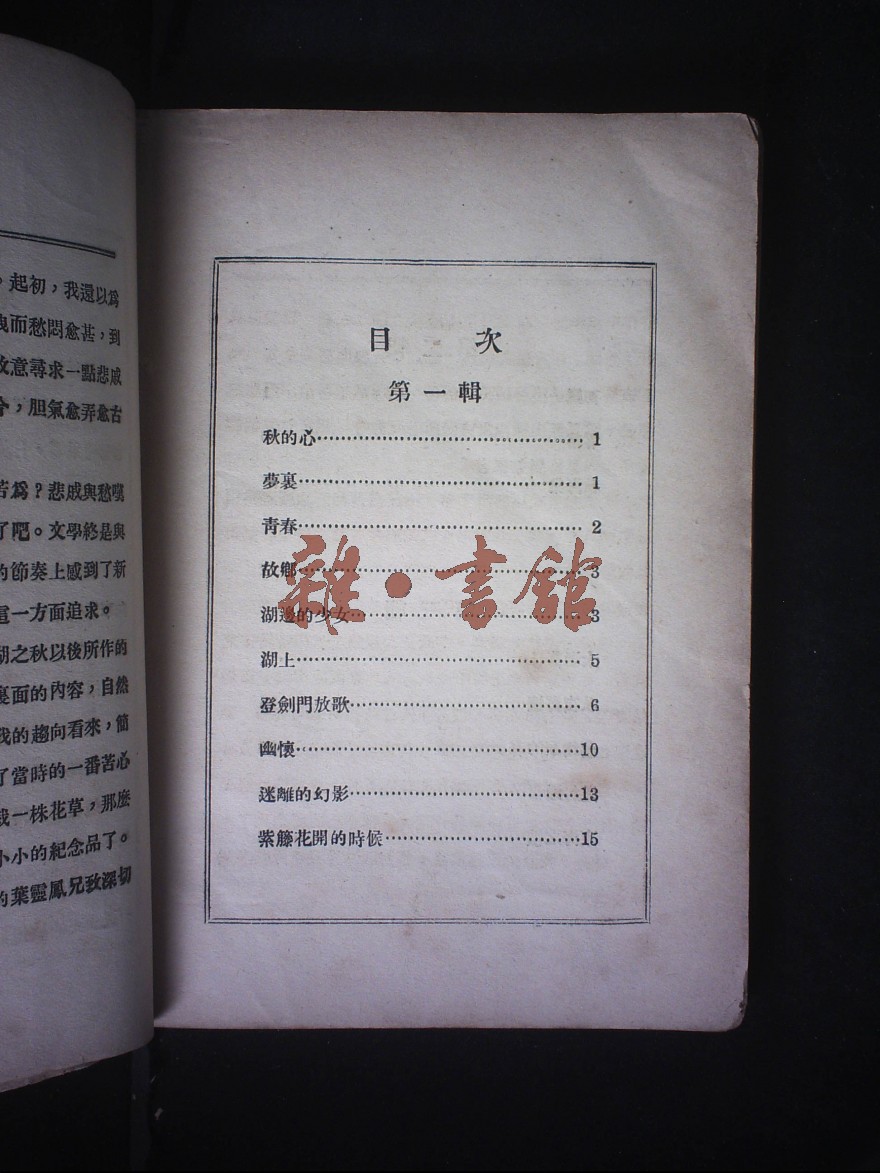 。起初，我還以爲
洩而愁悶愈甚，到
故意尋求一點悲戚
，胆氣愈弄愈古
若爲？悲戚與愁嘆
了吧。文學終是與
的節奏上感到了新
這一方面追求。
湖之秋以後所作的
裏面的內容，自然
我的趨向看來，簡
了當時的一番苦心
栽一株花草，那麼
小小的紀念品了。
的葉靈鳳兄致深切
目次
第一輯
秋的心…………………………………… 1
夢裏…………………………………… 1
靑春…………………………………… 2
故鄉…………………………………… 3
湖邊的少女…………………………… 3
湖上…………………………………… 5
登劍門放歌…………………………… 6
幽懷……………………………………10
迷離的幻影……………………………13
紫籐花開的時候………………………15
雜·書館